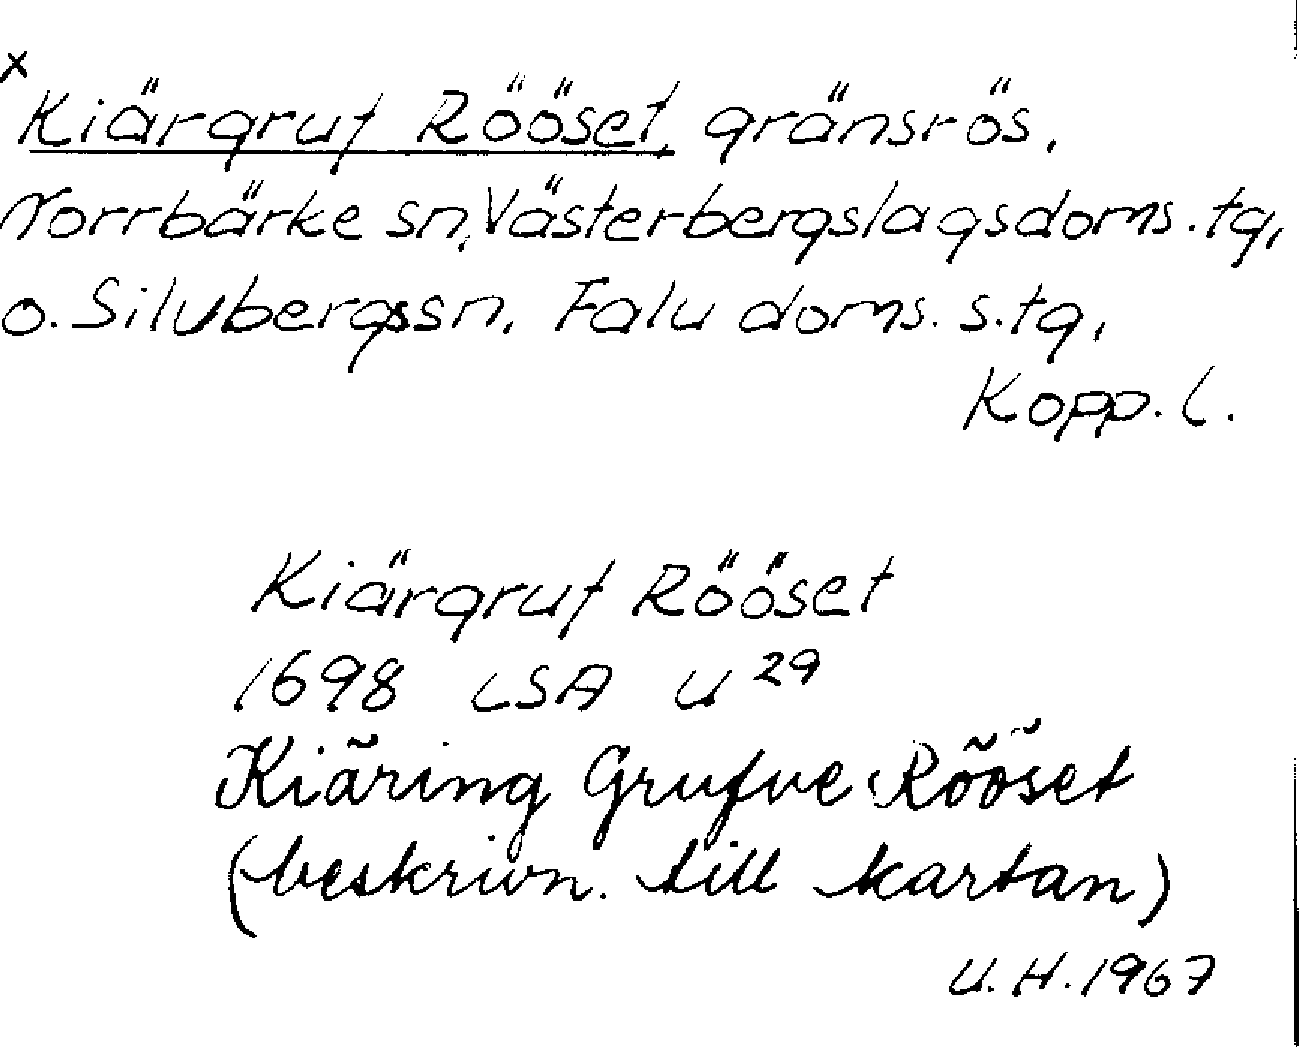 x
Kiärgruf Rööset, gränsrös,
Norrbärke sn, Västerbergslags doms. tg,
o. Silvbergs sn, Falu doms. s. tg,
Kopp. l.
Kiärgruf Rööset
1698 LSA U 29
Kiäring Grufve Rööset
(beskrivn. till kartan)
U. H. 1967